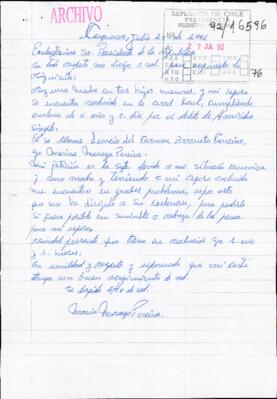 ARCHIVO
REPUBLICA DE CHILE
PRESIDENCIA
REGISTRO
92/16596
27 JUL 92
76
Cauquenes, Julio de 1992
Excelentísimo Sr. Presidente de la República
Con todo respeto me dirijo a ud. para exponerle lo
siguiente:
Soy una madre con tres hijos menores, y mi esposo
se encuentra recluido en la cárcel local, cumpliendo
condena de 5 años y 1 día por el delito de homicidio
simple.
El se llama del Carmen
yo María Moraga
Mi petición es la sgte. debido a mi situación económica
y como madre y teniendo a mi esposo recluido
me encuentro en grandes problemas, espor esto
que me he dirigido a Su Excelencia, para pedirle
si fuera posible un indulto o rebaja de la pena
para mi esposo,
presente que tiene de reclusión
y
Con humildad y respeto y esperando que mi carta
tenga un buen acogimiento de ud.
Se despide Atte de ud.
María Moraga